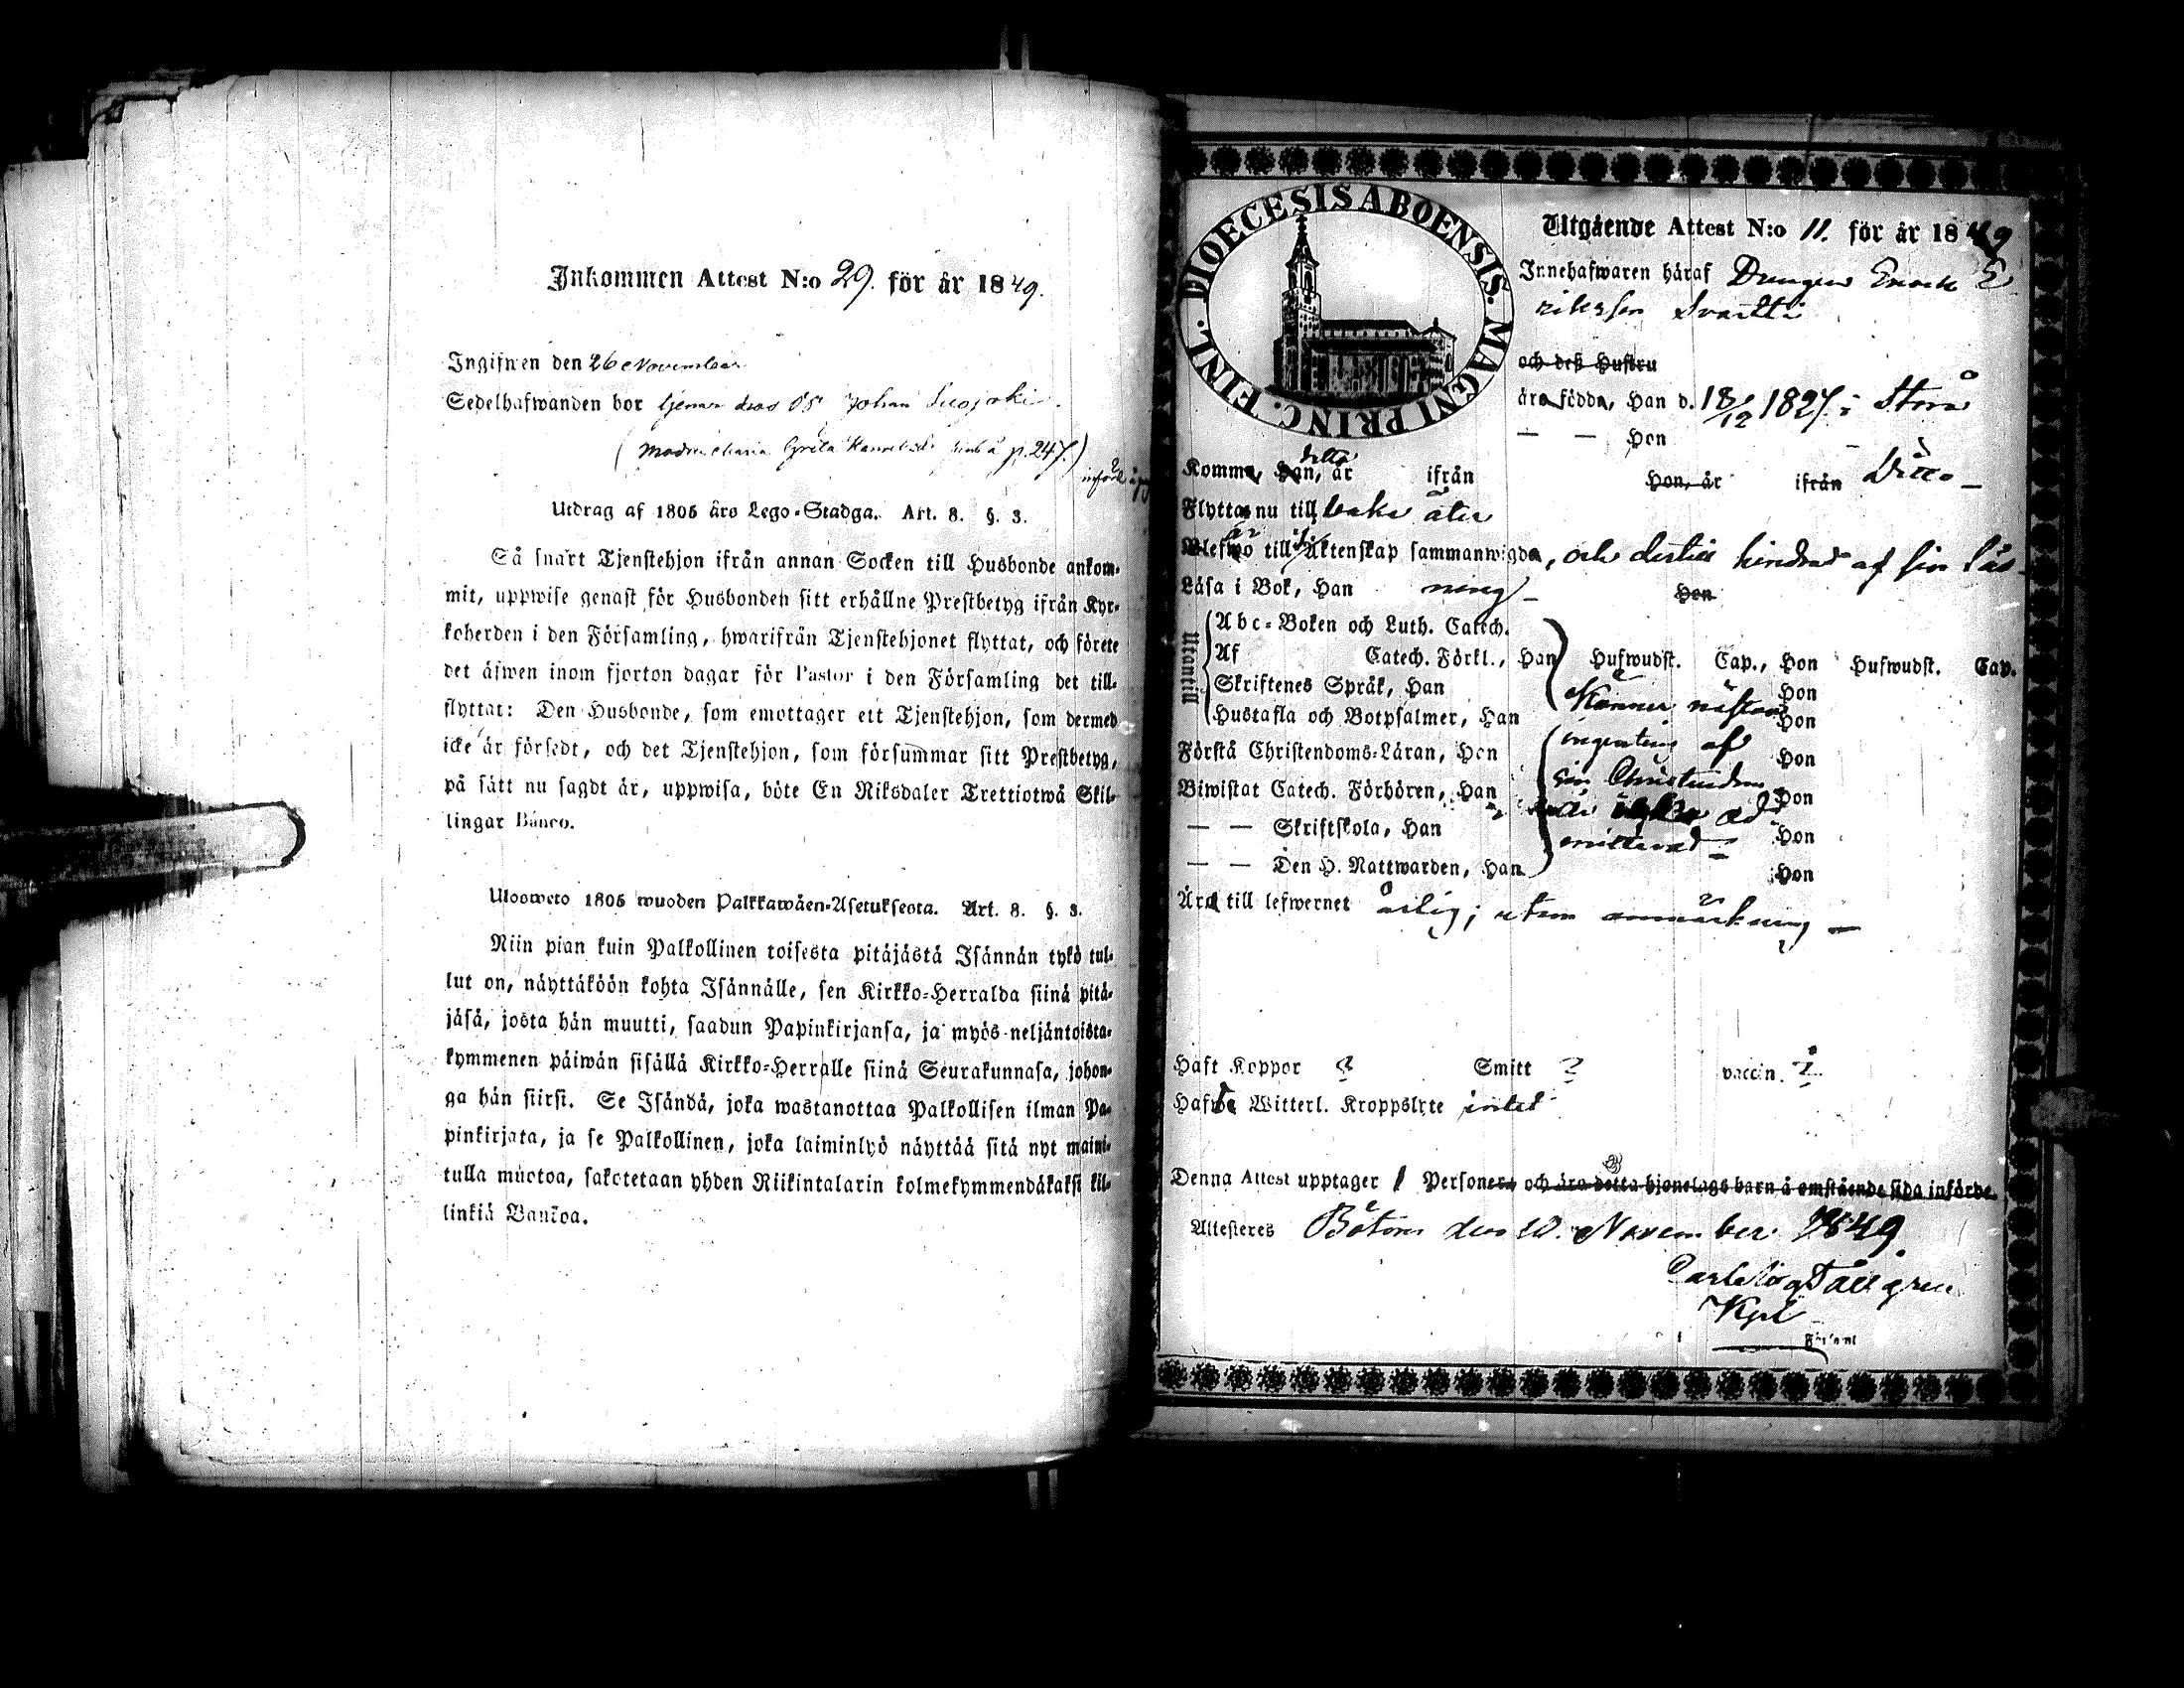 Inkommen Attest N:o 29. för år 1849.
Ingifwen den 26 November
Sedelhafwanden bor Johan
(Modren Maria Greta p. 247.)
införd å
Utdrag af 1805 års Lego-Stadga. Art. 8. §. 3.
Så snart Tjenstehjon ifrån annan Socken till Husbonde ankom-
mit, uppwise genast för Husbonden sitt erhållne Prestbetyg ifrån Kyr-
koherden i den Församling, hwarifrån Tjenstehjonet flyttat, och förete
det äfwen inom fjorton dagar för Pastor i den Församling det till-
flyttat: Den Husbonde, som emottager ett Tjenstehjon, som dermed
icke är försedt, och det Tjenstehjon, som försummar sitt Prestbetyg,
på sätt nu sagdt är, uppwisa, böte En Riksdaler Trettiotwå Skil-
lingar Banco.
Ulosweto 1805 wuoden Palkkawäen-Asetuksesta. Art. 8. §. 3.
Niin pian kuin Palkollinen toisesta pitäjästä Isännän tykö tul-
lut on, näyttäköön kohta Isännälle, sen Kirkko-Herralda siinä pitä-
jäsä, josta hän muutti, saadun Papinkirjansa, ja myös neljäntoista-
kymmenen päiwän sisällä Kirkko-Herralle siinä Seurakunnasa, johon-
ga hän siirsi. Se Isändä, joka wastanottaa Palkollisen ilman Pa-
pinkirjata, ja se Palkollinen, joka laiminlyö näyttää sitä nyt maini-
tulla muotoa, sakotetaan yhden Riikintalarin kolmekymmendäkaksi kil-
linkiä Bankoa.
DIOECESIS ABOENSIS. MAGNI PRINC. FINL.
Utgående Attest N:o 11. för år 1849
Innehafwaren häraf Drängen Enoch E
riksson Svartti
och deß Hustru
äro födda, Han d. 18/12 1827 i Storå
— — Hon
Komma, Han, är detta ifrån Hon, är ifrån Ditto —
Flyttas nu till baka åter
Blefwo till Äktenskap sammanwigda, och dertill hindrad af sin läs-
Läsa i Bok, Han ning — Hon
Utantill
Abc-Boken och Luth. Catech.
Af Catech. Förkl., Han Hufwudst. Cap., Hon Hufwudst. Cap.
Skriftenes Språk, Han Hon
Känner nästan
Hustafla och Botpsalmer, Han Hon
ingenting af
Förstå Christendoms-Läran, Han Hon
sin Christendom
Biwistat Catech. Förhören, Han Hon
är ad
— — Skriftskola, Han Hon
mitterad —
— — Den H. Nattwarden, Han Hon
Äro till lefwernet ärlig; utan anmärkning —
Haft Koppor ? Smitt ? vaccin. ?
Hafwa Witterl. Kroppslyte intet
Denna Attest upptager 1 Personer och äro detta hjonelags barn å omstående sida införde.
Attesteras Bötom den 20. November 1849.
Carl Tallgren
Kpl
Församl